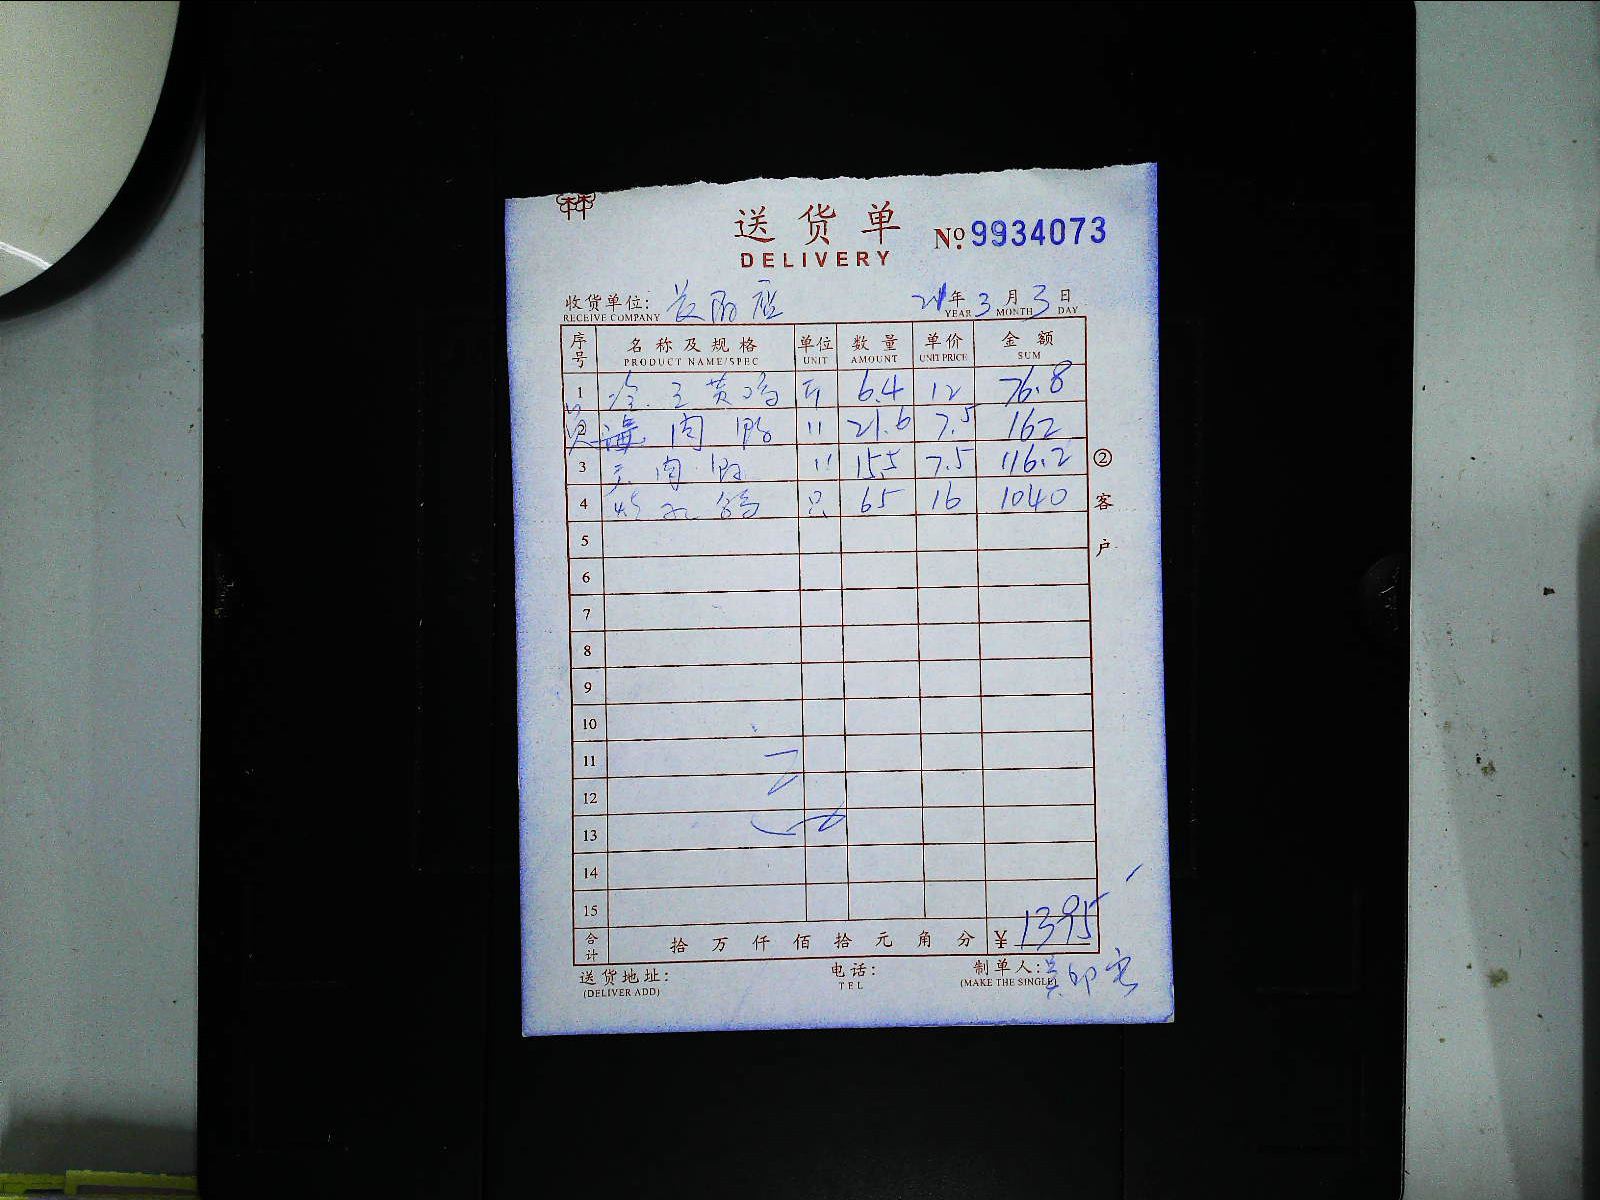 送货单
DELIVERY
№ 9934073
收货单位: 长阳店 21年3月3日
RECEIVE COMPANY YEAR MONTH DAY
序号 名称及规格 单位 数量 单价 金额
PRODUCT NAME/SPEC UNIT AMOUNT UNIT PRICE SUM
1 黄鸡 斤 6.4 12 76.8
2 肉鸭 〃 21.6 7.5 162
3 肉 〃 15.5 7.5 116.2
4 乳鸽 只 65 16 1040
5
6
7
8
9
10
11
12
13
14
15
合计 拾万仟佰拾元角分 ¥ 1395
送货地址: 电话: 制单人:
(DELIVER ADD) TEL (MAKE THE SINGLE)
②客户